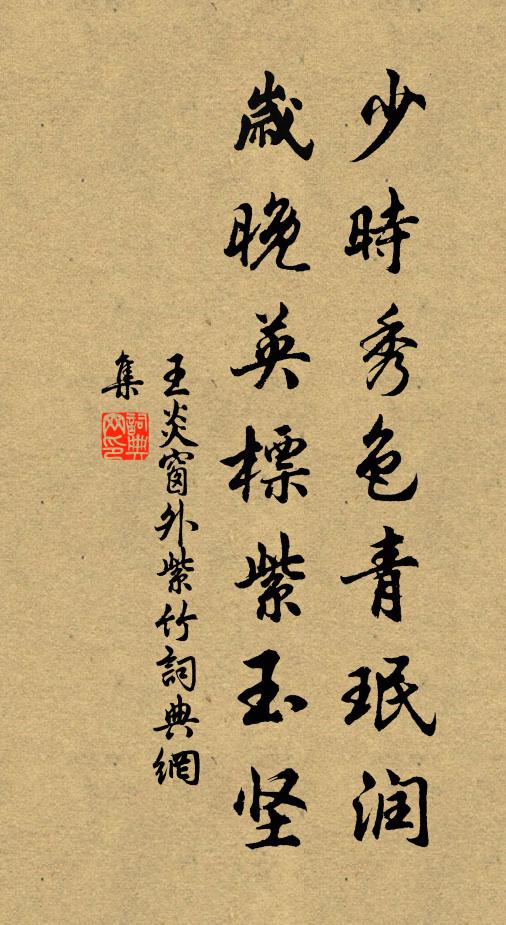 少時秀色青珉润
歳晚英標紫玉坚
王炎窗外紫竹詞典網
集
詞典網印